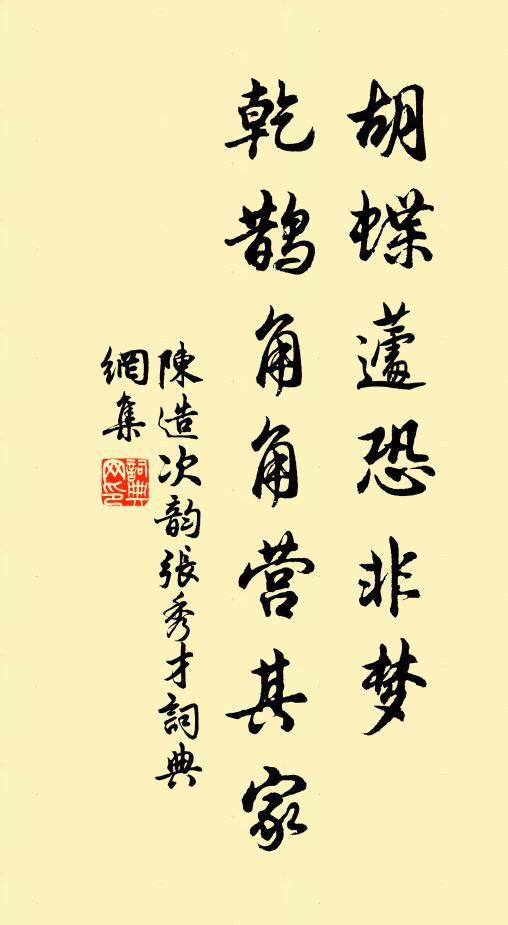 胡蝶蘧恐非梦
乾鹊角角营其家
陳造次韵張秀才詞典
網集
詞典
网印